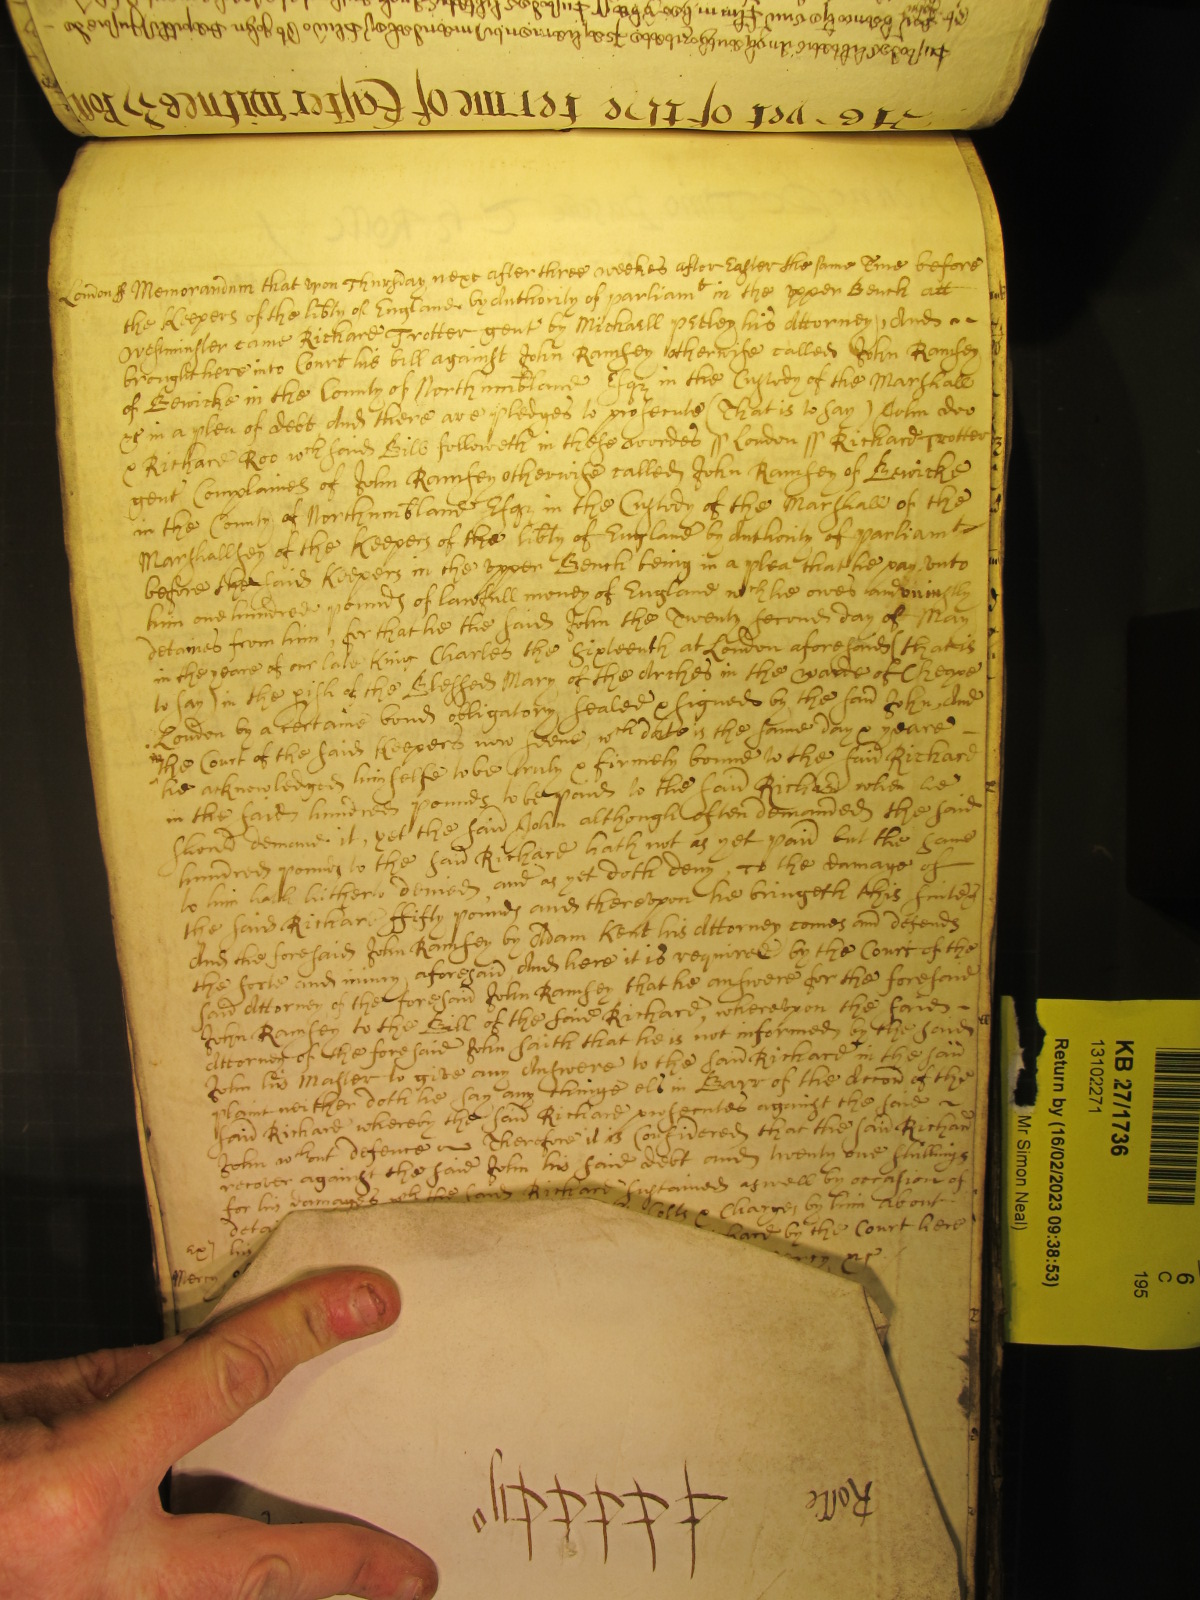 London ss Memorandum that upon Thursday next after three weekes after Easter the same Tme before
the Keepers of the libty of England by Authority of parliamt in the upper Bench att
Westminster came Richard Trotter gent by Michaell Petley his Attorney, And
brought here into Court his bill against John Ramsey otherwise called John Ramsey
of Bewicke in the County of Northumbland Esqr in the Custody of the Marshall
&c in a plea of debt And there are pledges to prosecute (That is to say) John Doo
& Richard Roo wch said Bill followeth in these wordes ss London ss Richard Trotter
gent Complaines of John Ramsey otherwise called John Ramsey of Bewicke
in the County of Northumbland Esqr in the Custody of the Marshall of the
Marshallsey of the Keepers of the libty of England by Authority of parliamt
before the said Keepers in the upper Bench being in a plea that he pay unto
him one hundred pounds of lawfull money of England wch he owes and uniustly
detaines from him, for that he the said John the Twenty second day of May
in the yeare of our late King Charles the Sixteenth at London aforesaid (that is
to say) in the pish of the Blessed Mary of the Arches in the warde of Cheape
London by a certaine bond obligatory sealed & signed by the said John, And
the Court of the said Keepers now here, wch date is the same day & yeare
he acknowledged himselfe to be truly & firmely bound to the said Richard
in the said hundred pounds to be paid to the said Richard when he
should demand it, yet the said John although often demanded the said
hundred pounds to the said Richard hath not as yet paid but the same
to him hath hitherto denied and as yet doth deny, To the damage of
the said Richard ffifty pounds and thereupon he bringeth this suite &c
And the foresaid John Ramsey by Adam Kent his Attorney comes and defends
the force and iniury aforesaid And here it is required by the Court of the
said Attorney of the foresaid John Ramsey that he answere for the foresaid
John Ramsey to the Bill of the said Richard, whereupon the said
Attorney of the foresaid John saith that he is not informed by the said
John his Master to give any Answere to the said Richard in the said
plaint neither doth he say any thinge els in Barr of the Accon of the
said Richard whereby the said Richard prosecutes against the said
John wthout defence Therefore it is Considered that the said Richard
recover against the said John his said debt and twenty one shillings
for his damages wch the said Richard sustained aswell by occasion of
deta Costs & Charges by him about
his hard by the Court here
Mercy &c
Rolle
KB 27/1736
13102271
Return by (16/02/2023 09:38:53)
Mr Simon Neal)
6
C
195